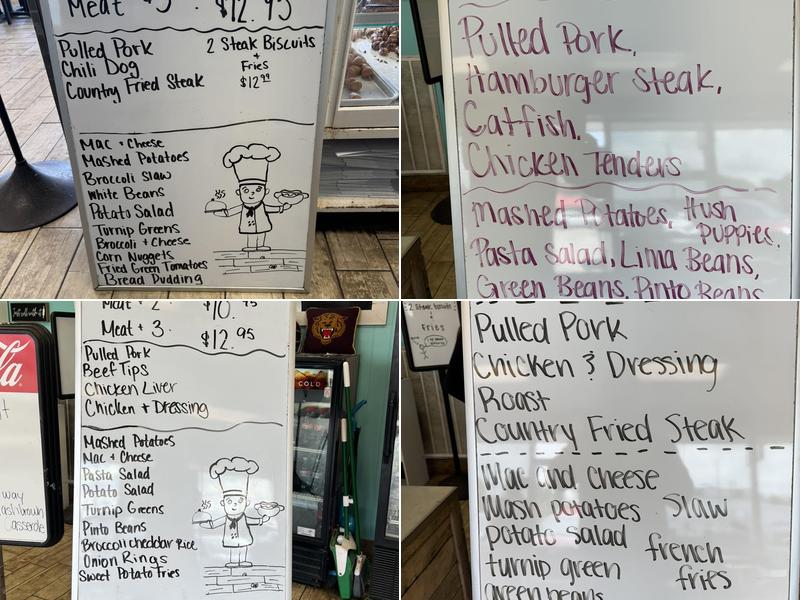 Meat + 3 . $12.95
Pulled Pork
Chili Dog
Country Fried Steak
2 Steak Biscuits
+
Fries
$12.99
Mac + Cheese
Mashed Potatoes
Broccoli Slaw
White Beans
Potato Salad
Turnip Greens
Broccoli + Cheese
Corn Nuggets
Fried Green Tomatoes
Bread Pudding
Pulled Pork,
Hamburger Steak,
Catfish,
Chicken Tenders
Mashed Potatoes, Hush
Puppies,
Pasta Salad, Lima Beans,
Green Beans, Pinto Beans
Meat + 2 $10.95
Meat + 3. $12.95
Pulled Pork
Beef Tips
Chicken Liver
Chicken + Dressing
Mashed Potatoes
Mac + Cheese
Pasta Salad
Potato Salad
Turnip Greens
Pinto Beans
Broccoli Cheddar Rice
Onion Rings
Sweet Potato Fries
way
Casserole
COLD
2 Steak Biscuits
Fries
Pulled Pork
Chicken & Dressing
Roast
Country Fried Steak
Mac and Cheese
Mash potatoes Slaw
potato salad
french
turnip green
fries
green beans